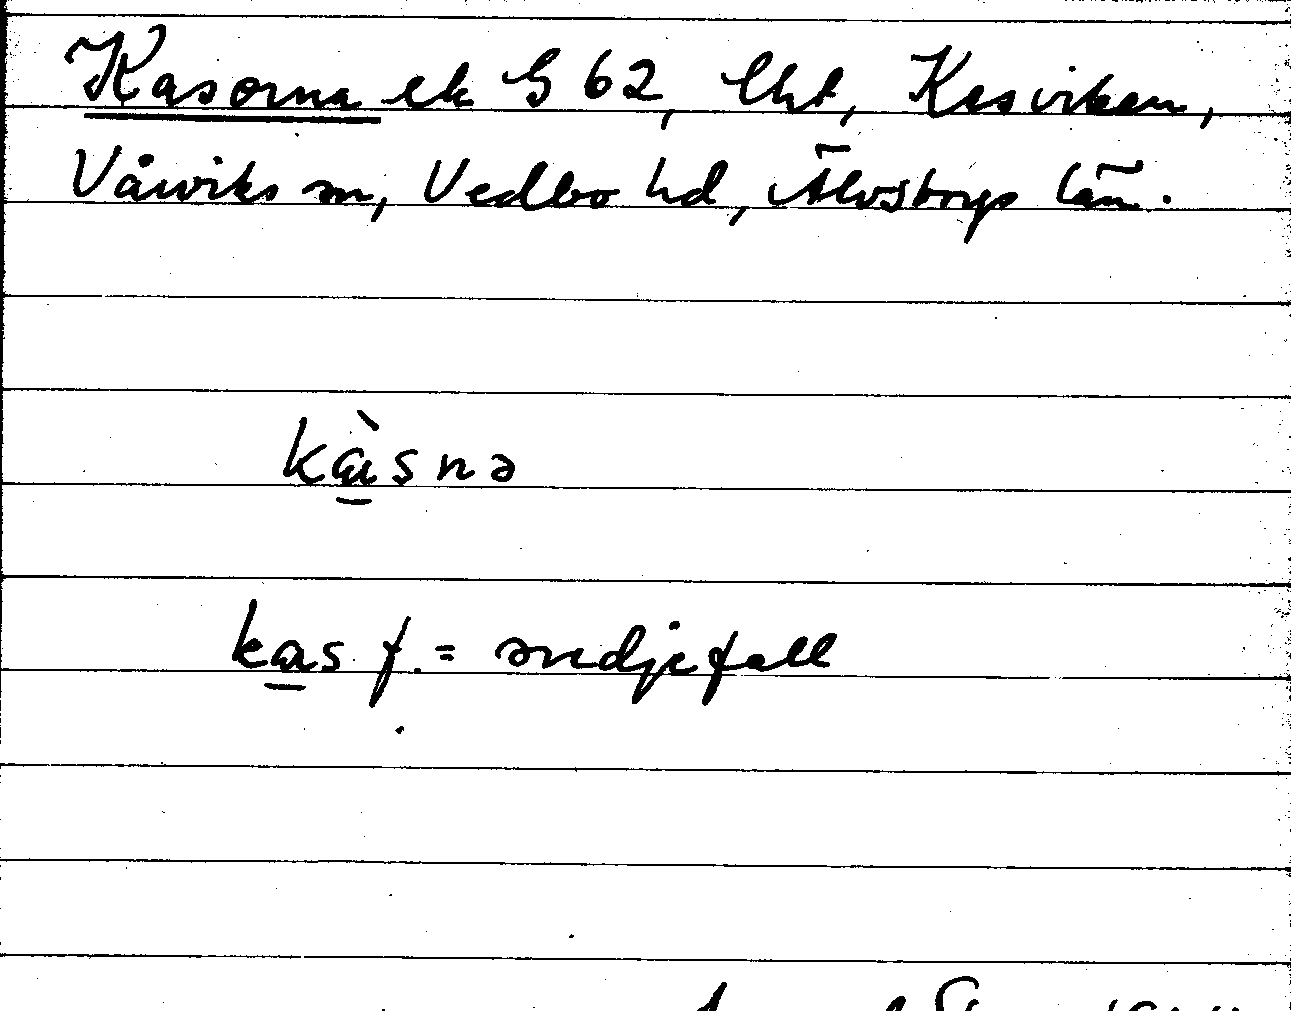 Kasorna ek G 62, lht, Kasviken,
Vårviks sn, Vedbo hd, Älvsborgs län.
kàsnə
kas f. = svedjefall